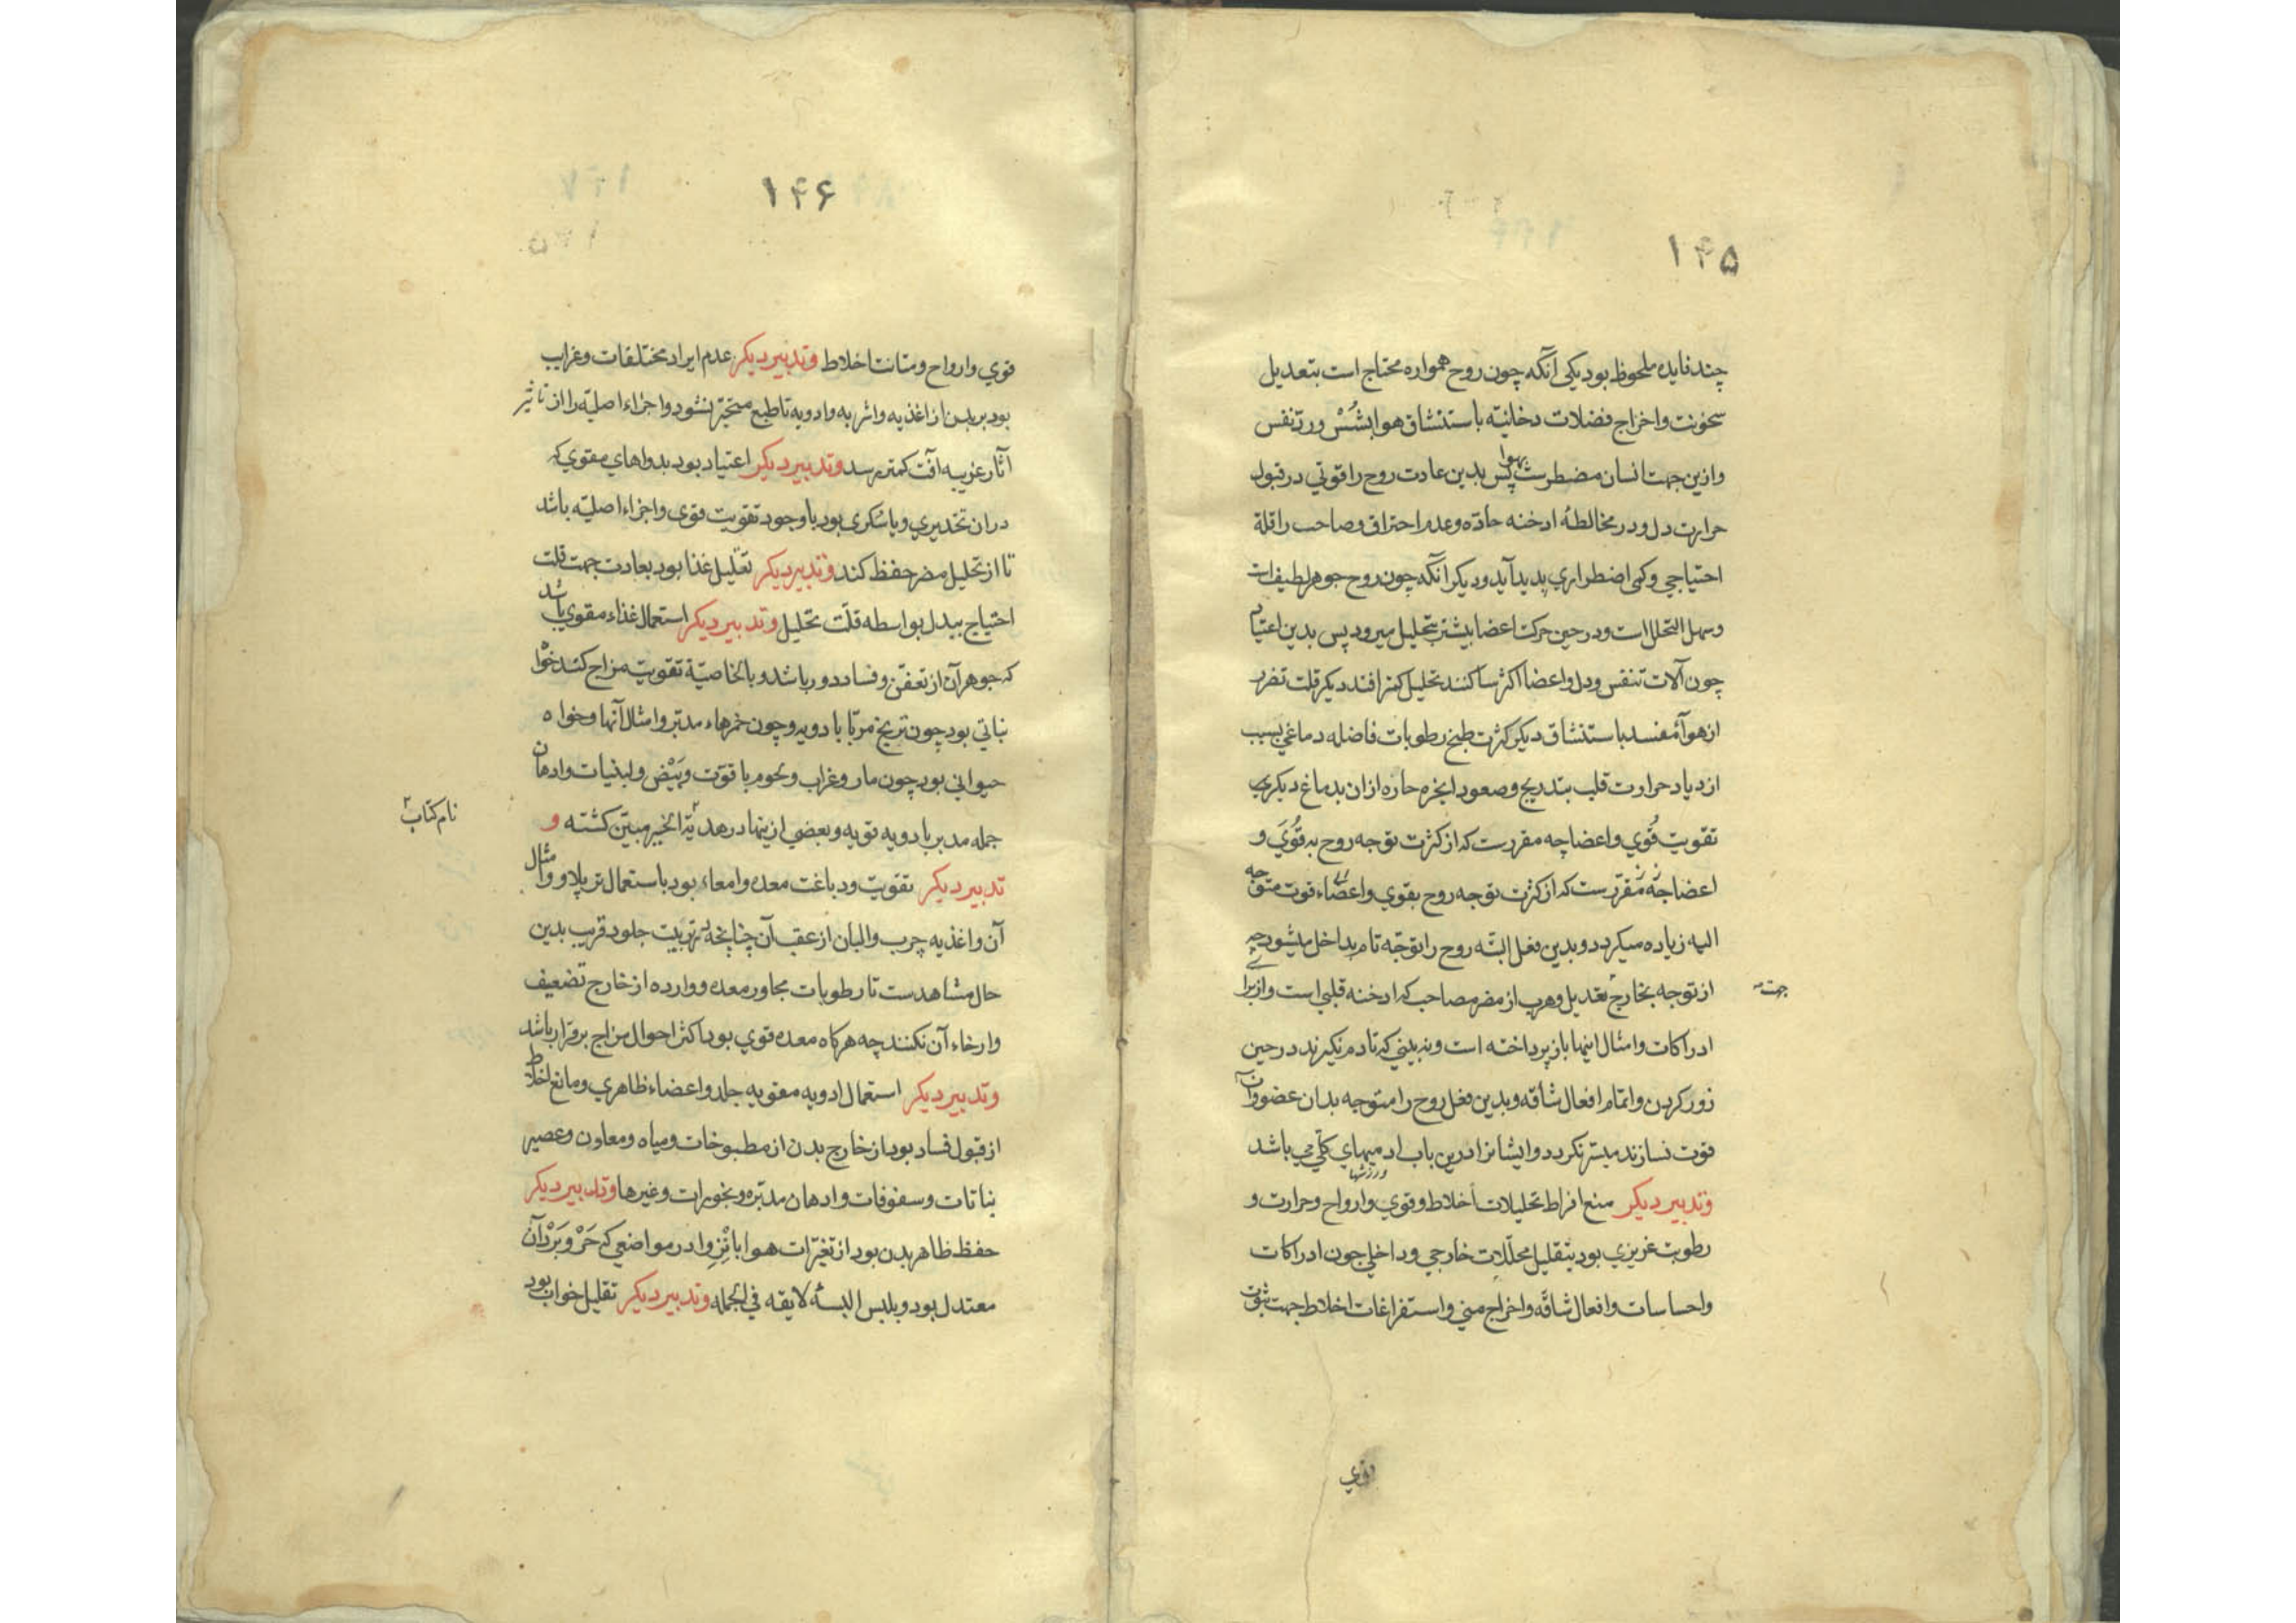 ۱۴۵
چند فایده ملحوظ بود یکی آنکه چون روح همواره محتاج است بتعدیل
سخونت و اخراج فضلات دخانیّه باستنشاق هوا بشُسْ و رد تنفس
وازین جهت انسان مضطرست بهوا پس بدین عادت روح را قوتی در قبول
حرارت دل و در مخالطهٔ ادخنه حادّه و عدم احتراق و صاحب را قلة
احتیاجی و کمی اضطراری پدید آید و دیکر آنکه چون روح جوهر لطیف است
و سهل التحلل است و در حین حرکت اعضا بیشتر بتحلیل میرود پس بدین اعتیاد
چون آلات تنفس و دل و اعضا اکثر ساکنند تحلیل کمتر افتد دیکر قلت تضرر
از هوآء مفسد باستنشاق دیکر کثرت طبخ رطوبات فاضله دماغی بسبب
ازدیاد حرارت قلب بتدریج و صعود ابخره حاره ازان بدماغ دیکری
تقویت قُوي و اعضا چه مقررست که از کثرت توجه روح به قُوَي و
اعضا چه مقرّرست که از کثرت توجه روح بقوي و اعضاء قوت متوجه
الیه زیاده میکردد و بدین فعل البتّه روح را توجّه تام بداخل میشود چه
از توجه بخارج تعدیل و هرب از مضر مصاحب که ادخنه قلبی است و از برا
جهت
ادراکات و امثال اینها باز پرداخته است و نه بینی که تا دم نکیرند در حین
زور کردن و اتمام افعال شاقّه و بدین فعل روح را متوجه بدان عضو و آن
قوت نسازند میسّر نکردد و ایشانرا درین باب ادمیهاي کلّي مي باشد
ورزشها
وتدبیر دیکر منع افراط تحلیلات اخلاط و قوي و ارواح و حرارت و
رطوبت غریزي بود بتقلیل محلّلات خارجي و داخلي چون ادراکات
و احساسات و افعال شاقّه و اخراج مني و استفراغات اخلاط جهت ثبوت
قوي
۱۴۶
قوي و ارواح و متانت اخلاط وتدبیر دیکر عدم ایراد مختلفات و غرایب
بود بر بدن از اغذیه و اشربه و ادویه تا طبع متحیّر نشود و اجزاء اصلیّه را از تاثیر
آثار غریبه آفت کمتر رسد وتدبیر دیکر اعتیاد بود بدواهاي مقوي که
دران تخدیري و یا سُکري بود با وجود تقویت قوی و اجزاء اصلیّه باشد
تا از تحلیل مضر حفظ کند وتدبیر دیکر تقلیل غذا بود بعادت جهت قلت
احتیاج ببدل بواسطه قلّت تحلیل وتدبیر دیکر استعمال غذاء مقوي باشد
که جوهر آن از تعفن و فساد دور باشد و بالخاصیّة تقویت مزاج کند خواه
نباتي بود چون تریخ مربّا با دویه و چون خمرهاء مدبّر و امثال آنها و خواه
حیواني بود چون مار و غراب و لحوم با قوّت و بَیْض و لبنیات و ادهان
جمله مدبر با دویه قویه و بعضي ازینها در هدیّة الخیر مبیّن کشته و
نام کتاب
تدبیر دیکر تقویت و دباغت معده و امعاء بود باستعمال تربلا و امثال
آن و اغذیه چرب و البان از عقب آن چنانچه تربیت جلود قریب بدین
حال مشاهدست تا رطوبات مجاور معده و وارده از خارج تضعیف
و ارخاء آن نکنند چه هرکاه معده قوي بود اکثر احوال مزاج برقرار باشد
وتدبیر دیکر استعمال ادویه مقویه جلد و اعضاء ظاهري و مانع اخلاط
از قبول فساد بود از خارج بدن از مطبوخات و میاه و معاون و عصیر
نباتات و سفوفات و ادهان مدبّره و بخورات و غیرها وتدبیر دیکر
حفظ ظاهر بدن بود از تغیّرات هوا با نْزِوا در مواضعي که حَرّ و بَرْد آن
معتدل بود و بلبس البسهٔ لایقه في الجمله وتدبیر دیکر تقلیل خواب بود